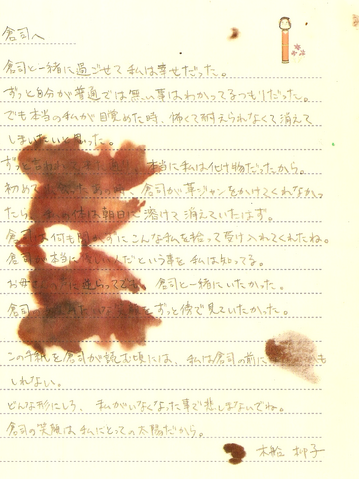 倉司へ
倉司と一緒に過ごせて私は幸せだった。
ずっと自分が普通では無い事はわかってるつもりだった。
でも本当の私が目覚めた時、怖くて耐えられなくて消えて
しまいたいと思った。
本当に私は化け物だったから。
初めて 倉司が革ジャンをかけてくれなかっ
たら、 体は朝日に溶けて消えていたはず。
倉司は何も聞かずにこんな私を拾って受け入れてくれたね。
倉司が本当は という事を私は知ってる。
お母さん 倉司と一緒にいたかった。
倉司の ずっと傍で見ていたかった。
この手紙を倉司が読む頃には、私は倉司の前に
しれない。
どんな形にしろ、私がいなくなった事で悲しまないでね。
倉司の笑顔は私にとっての太陽だから。